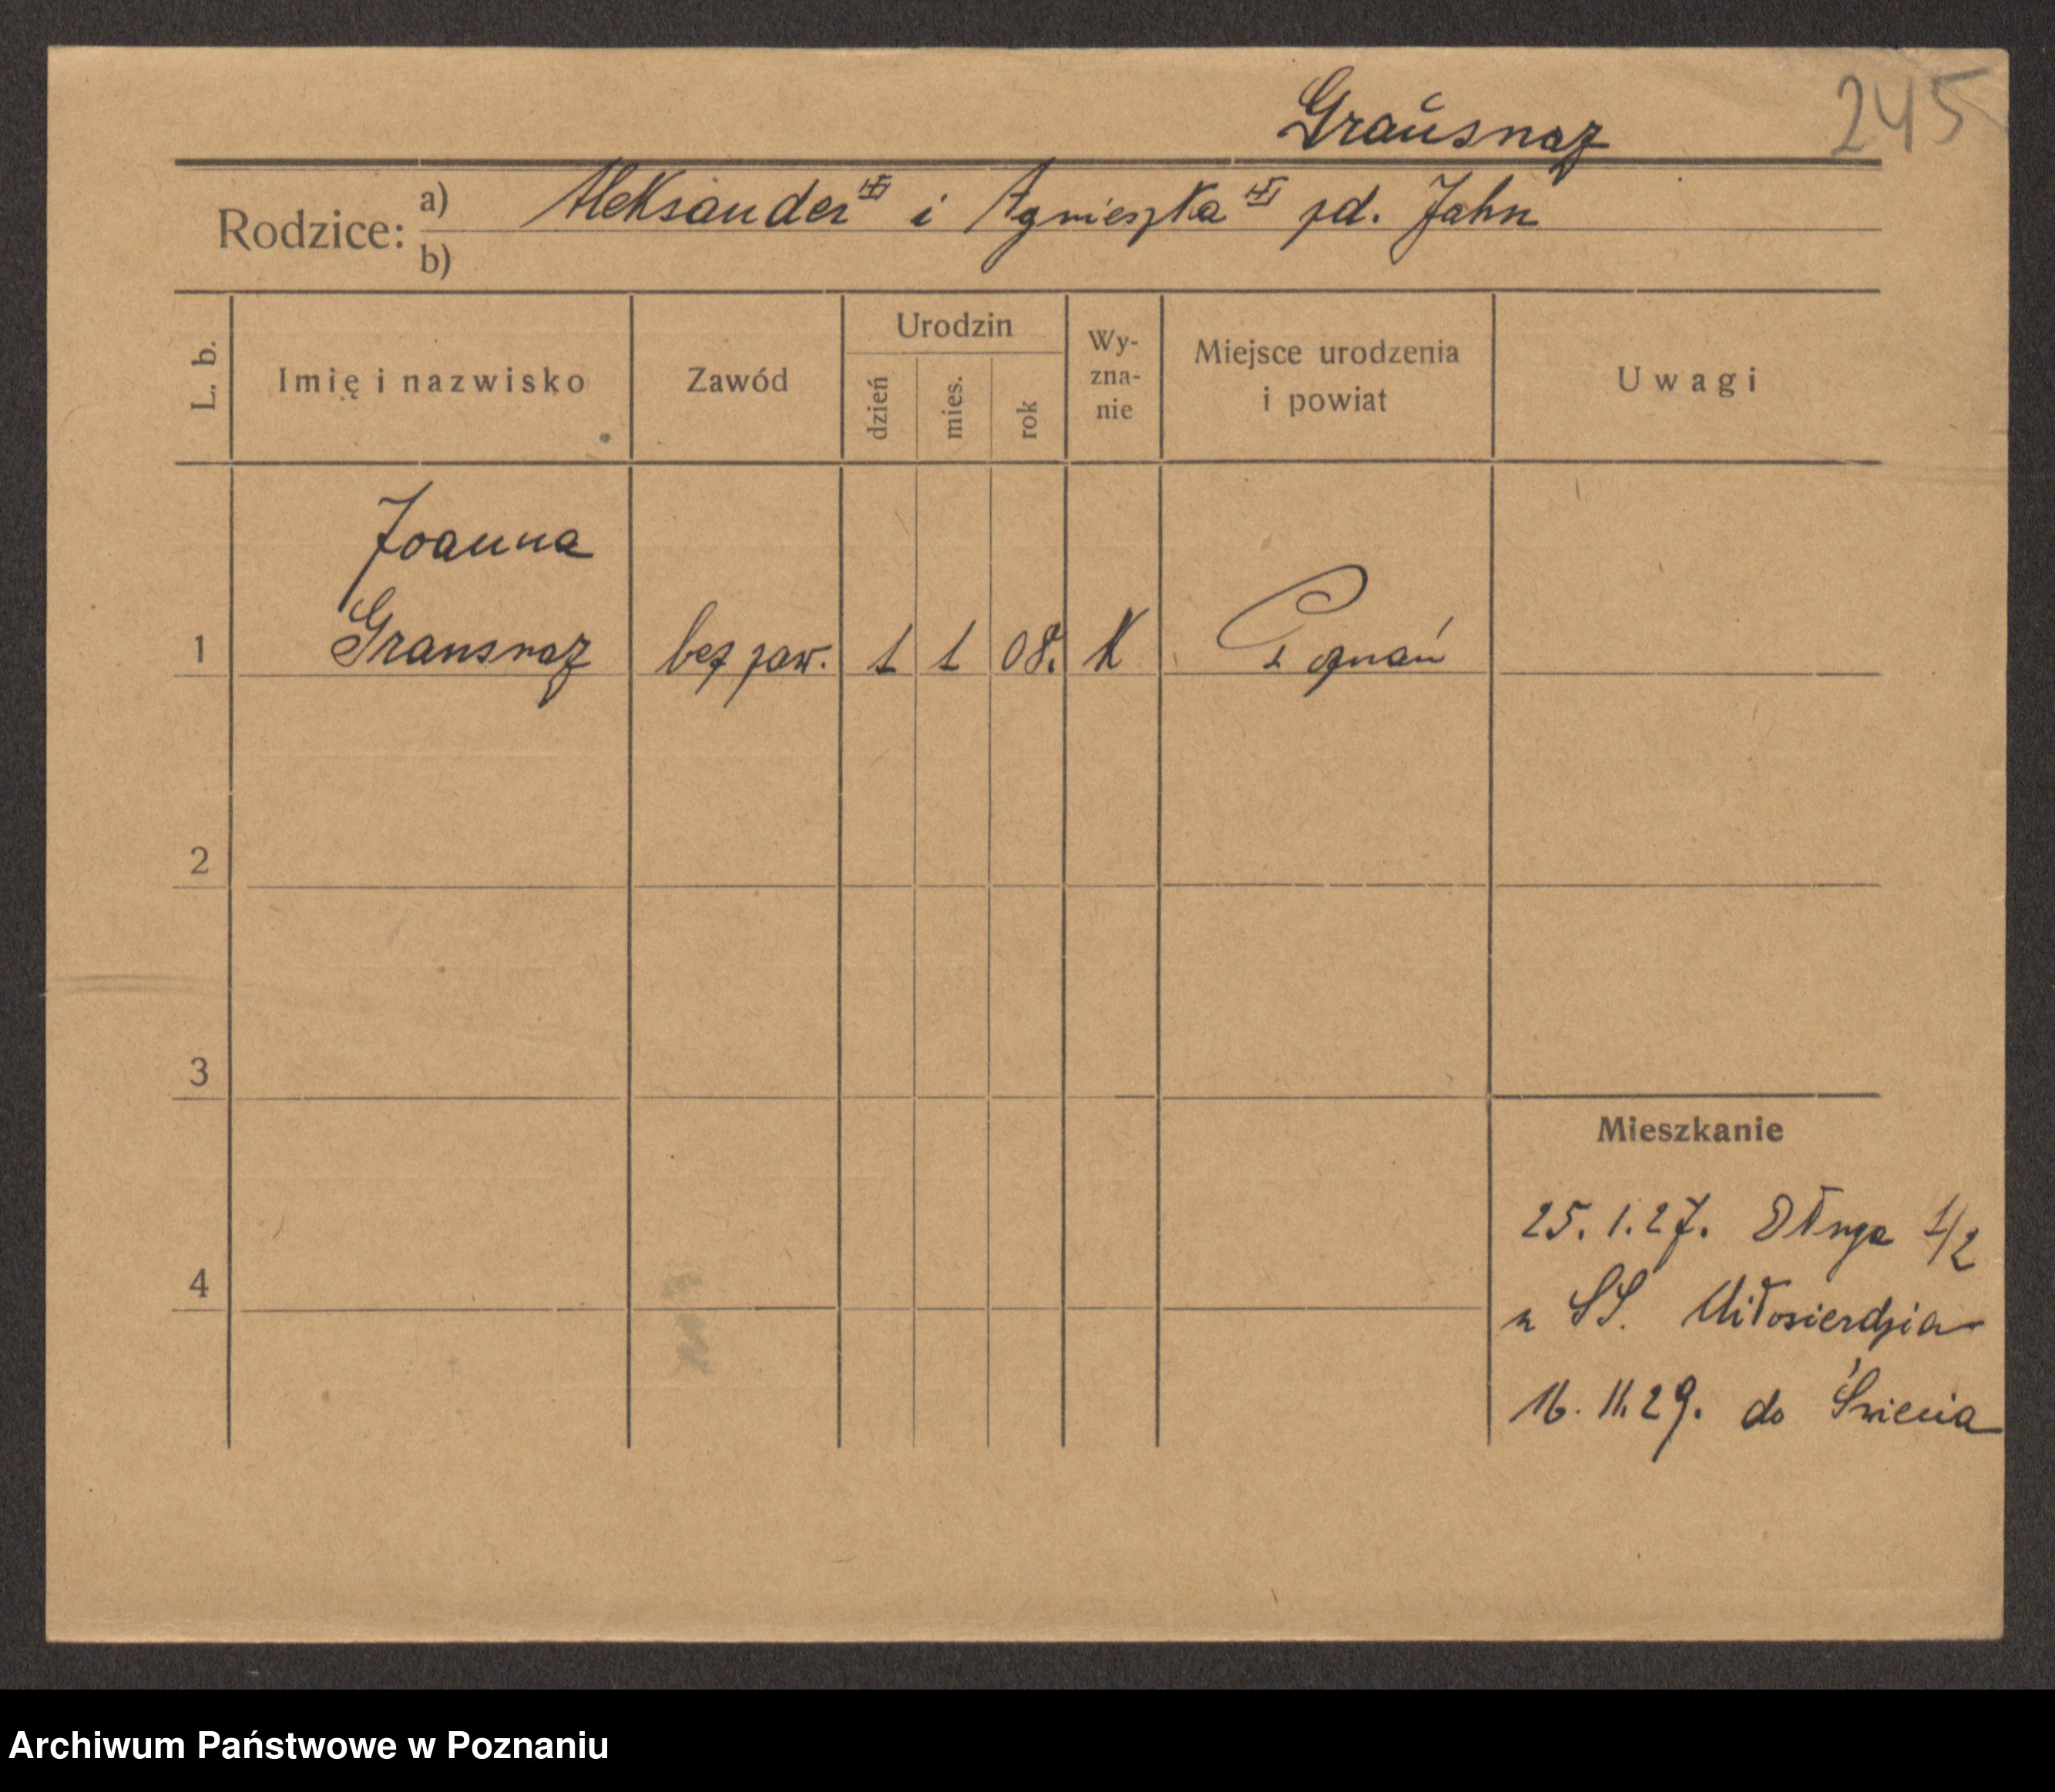 245
Grausnaz
Rodzice: a) Aleksander i Agnieszka zd. Jahn
b)
L. b. Imię i nazwisko Zawód Urodzin dzień mies. rok Wy-zna-nie Miejsce urodzenia i powiat Uwagi
Joanna
1 Grausnaz bez zaw. 1 1 08. K Poznań
2
3
Mieszkanie
25.1.27. Długa 1/2
u SS. Miłosierdzia
4
16.11.29. do Świecia
Archiwum Państwowe w Poznaniu